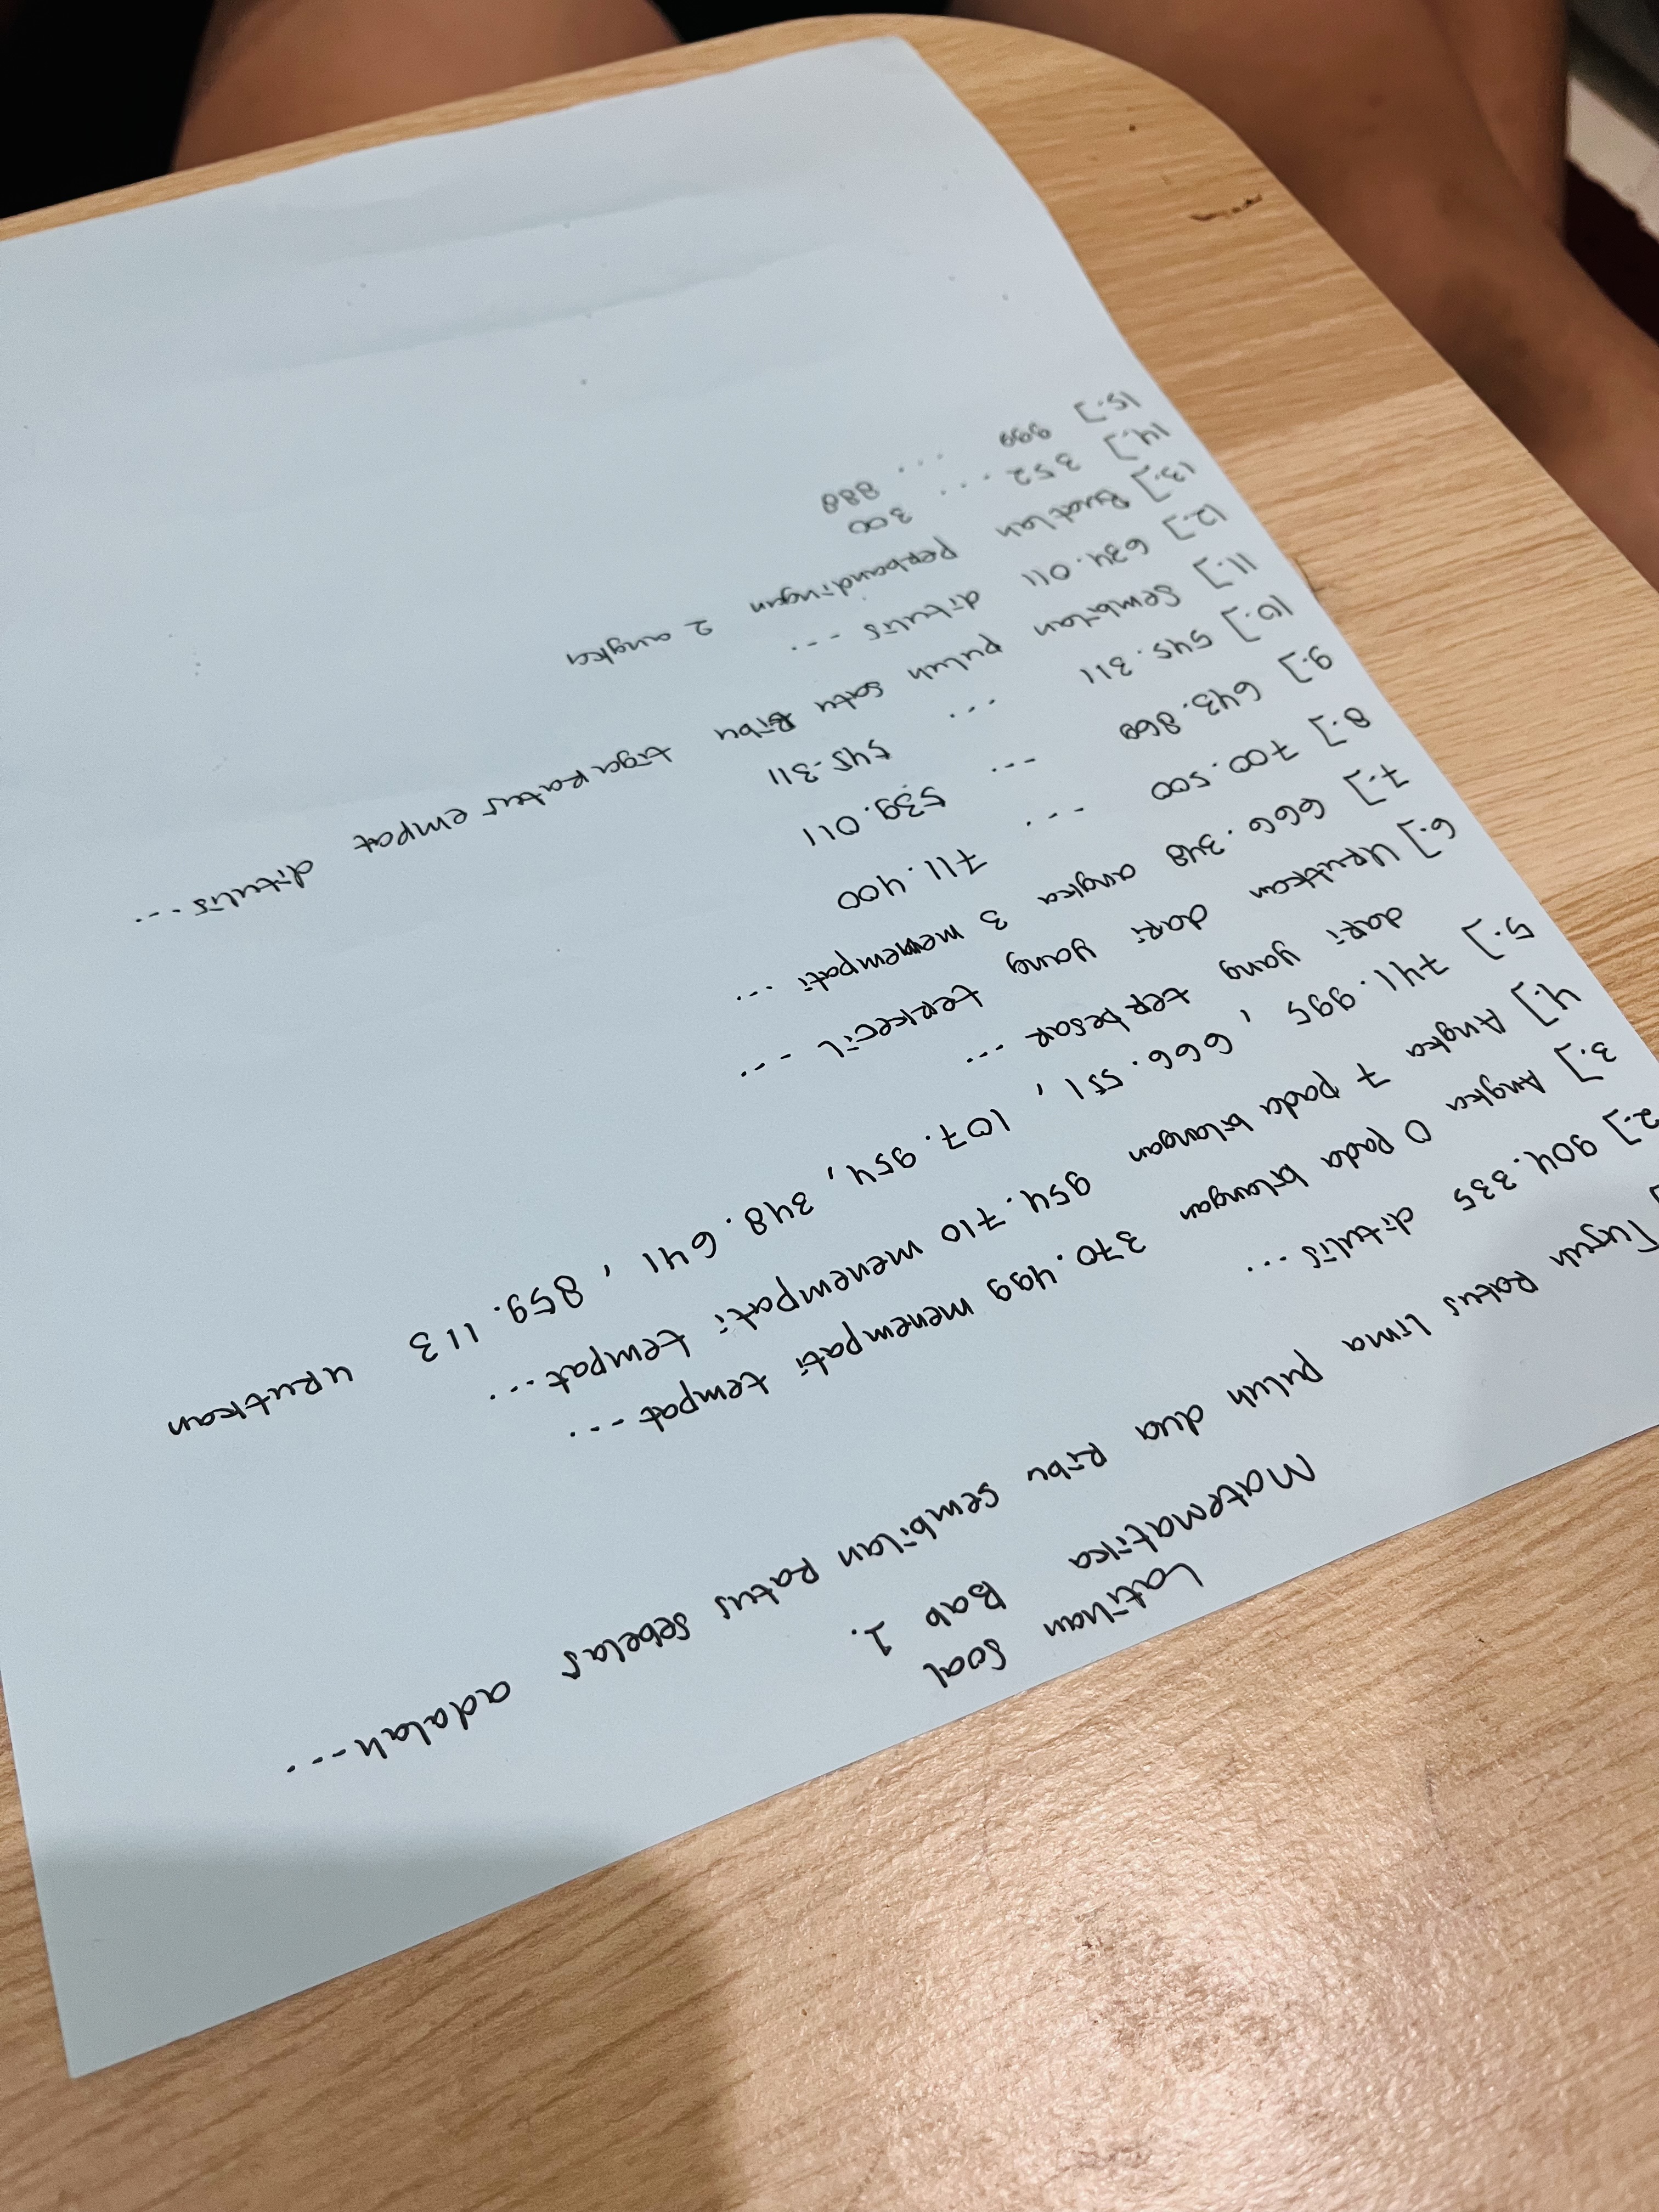 Latihan Soal
Matematika Bab 1.
Tujuh Ratus lima puluh dua Ribu sembilan Ratus sebelas adalah...
2.] 904.335 ditulis...
3.] Angka 0 pada bilangan 370.499 menempati tempat...
4.] Angka 7 pada bilangan 954.710 menempati tempat...
5.] 741.995, 666.551, 107.954, 348.641, 859.113 urutkan
dari yang terbesar...
6.] Urutkan dari yang terkecil...
7.] 666.348 angka 3 menempati...
8.] 700.500 ... 711.400
9.] 643.869 ... 539.011
10.] 545.311 ... 545.311
11.] Sembilan puluh satu Ribu tiga Ratus empat ditulis...
12.] 634.011 ditulis...
13.] Buatlah perbandingan 2 angka
14.] 352 ... 300
15.] 999 ... 888